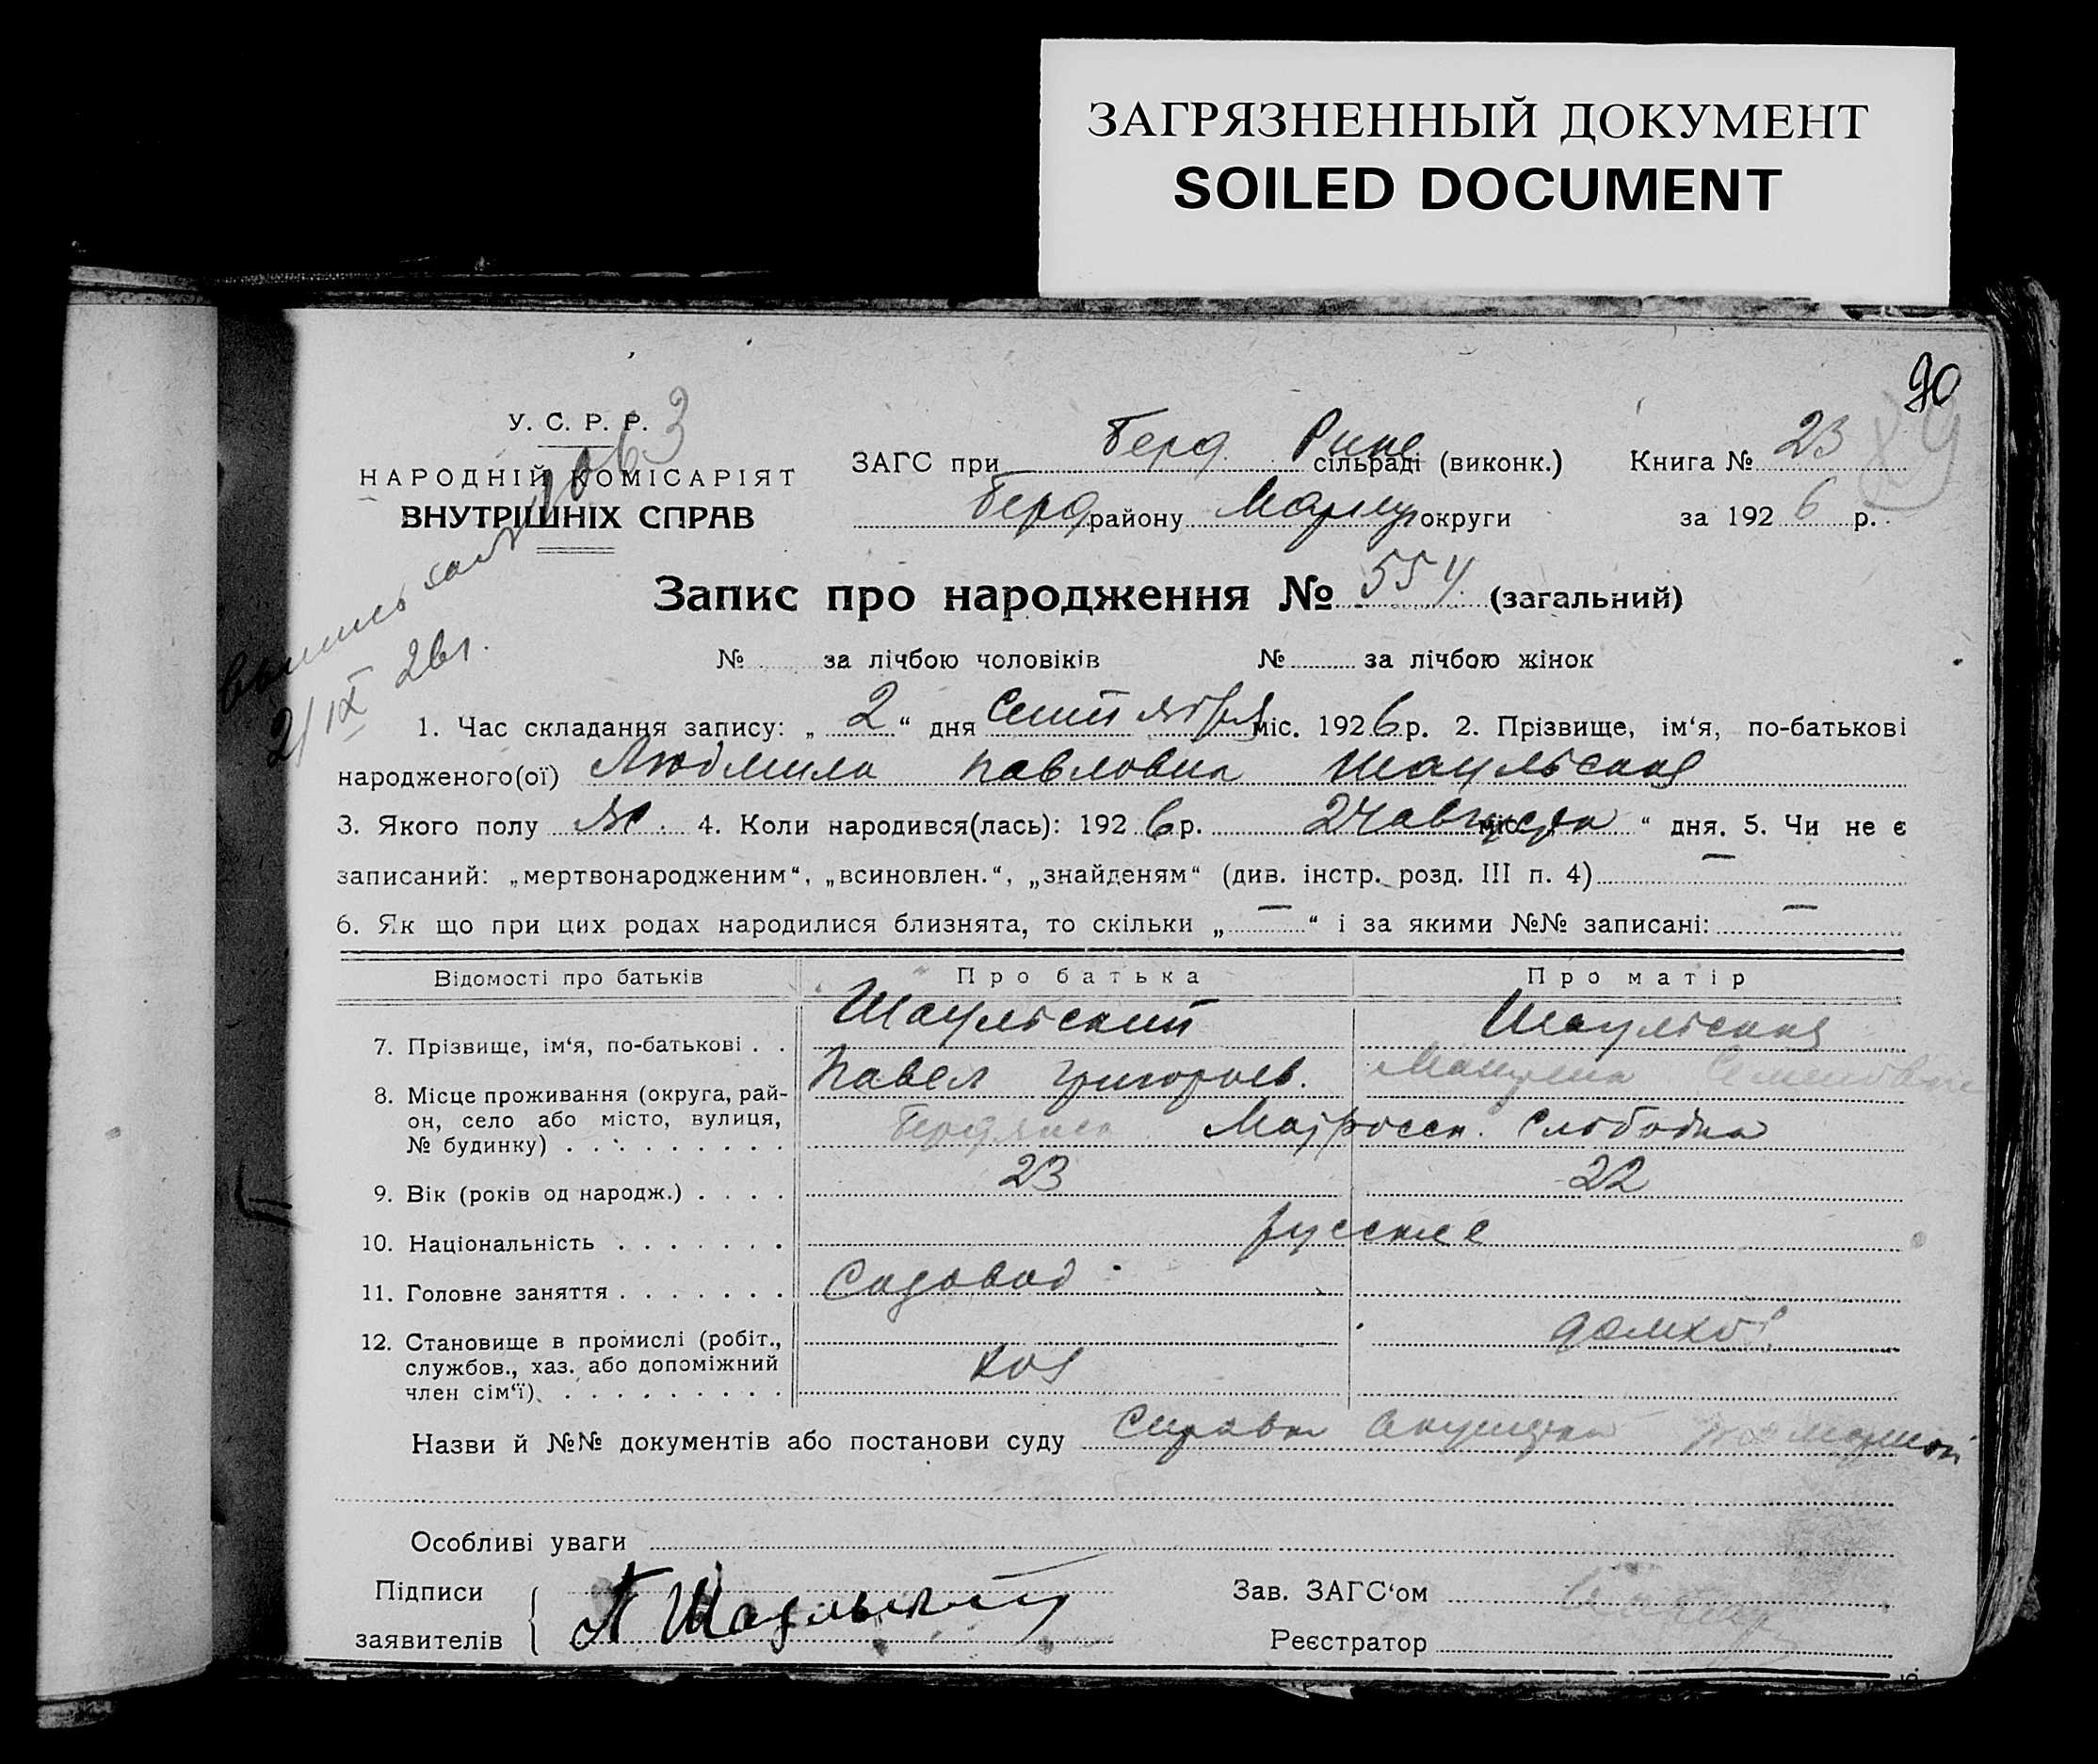 ЗАГРЯЗНЕННЫЙ ДОКУМЕНТ
SOILED DOCUMENT
90
89
У. С. Р. Р.
НАРОДНІЙ КОМІСАРІЯТ
ВНУТРІШНІХ СПРАВ
ЗАГС при Берд. Рике сільраді (виконк.) Книга № 23
Берд району Мариуп округи за 1926 р.
Запис про народження № 554 (загальний)
№ за лічбою чоловіків № за лічбою жінок
1. Час складання запису: „ 2 “ дня Сентября міс. 1926 р. 2. Прізвище, ім‘я, по-батькові
народженого(ої) Людмила Павловна Шаульская
3. Якого полу ж. 4. Коли народився(лась): 1926 р. 24 августа міс. „ “ дня. 5. Чи не є
записаний: „мертвонародженим“, „всиновлен.“, „знайденям“ (див. інстр. розд. III п. 4) —
6. Як що при цих родах народилися близнята, то скільки „ — “ і за якими №№ записані: —
Відомості про батьків Про батька Про матір
7. Прізвище, ім‘я, по-батькові . . Шаульский Шаульская
Павел Григорьев. Семеновна
8. Місце проживання (округа, рай-
он, село або місто, вулиця,
№ будинку) . . . . . . . . . Бердянск Матросск. Слободка
9. Вік (років од народж.) . . . . 23 22
10. Національність . . . . . . . русские
11. Головне заняття . . . . . . . Садовод
12. Становище в промислі (робіт.,
службов., хаз. або допоміжний
член сім‘ї). . . . . . . . . . хоз домхоз
Назви й №№ документів або постанови суду Справка Акушерки
Особливі уваги
Підписи
заявителів П Шаульский
Зав. ЗАГС‘ом
Реєстратор